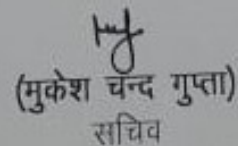 (मुकेश चन्द गुप्ता)
सचिव